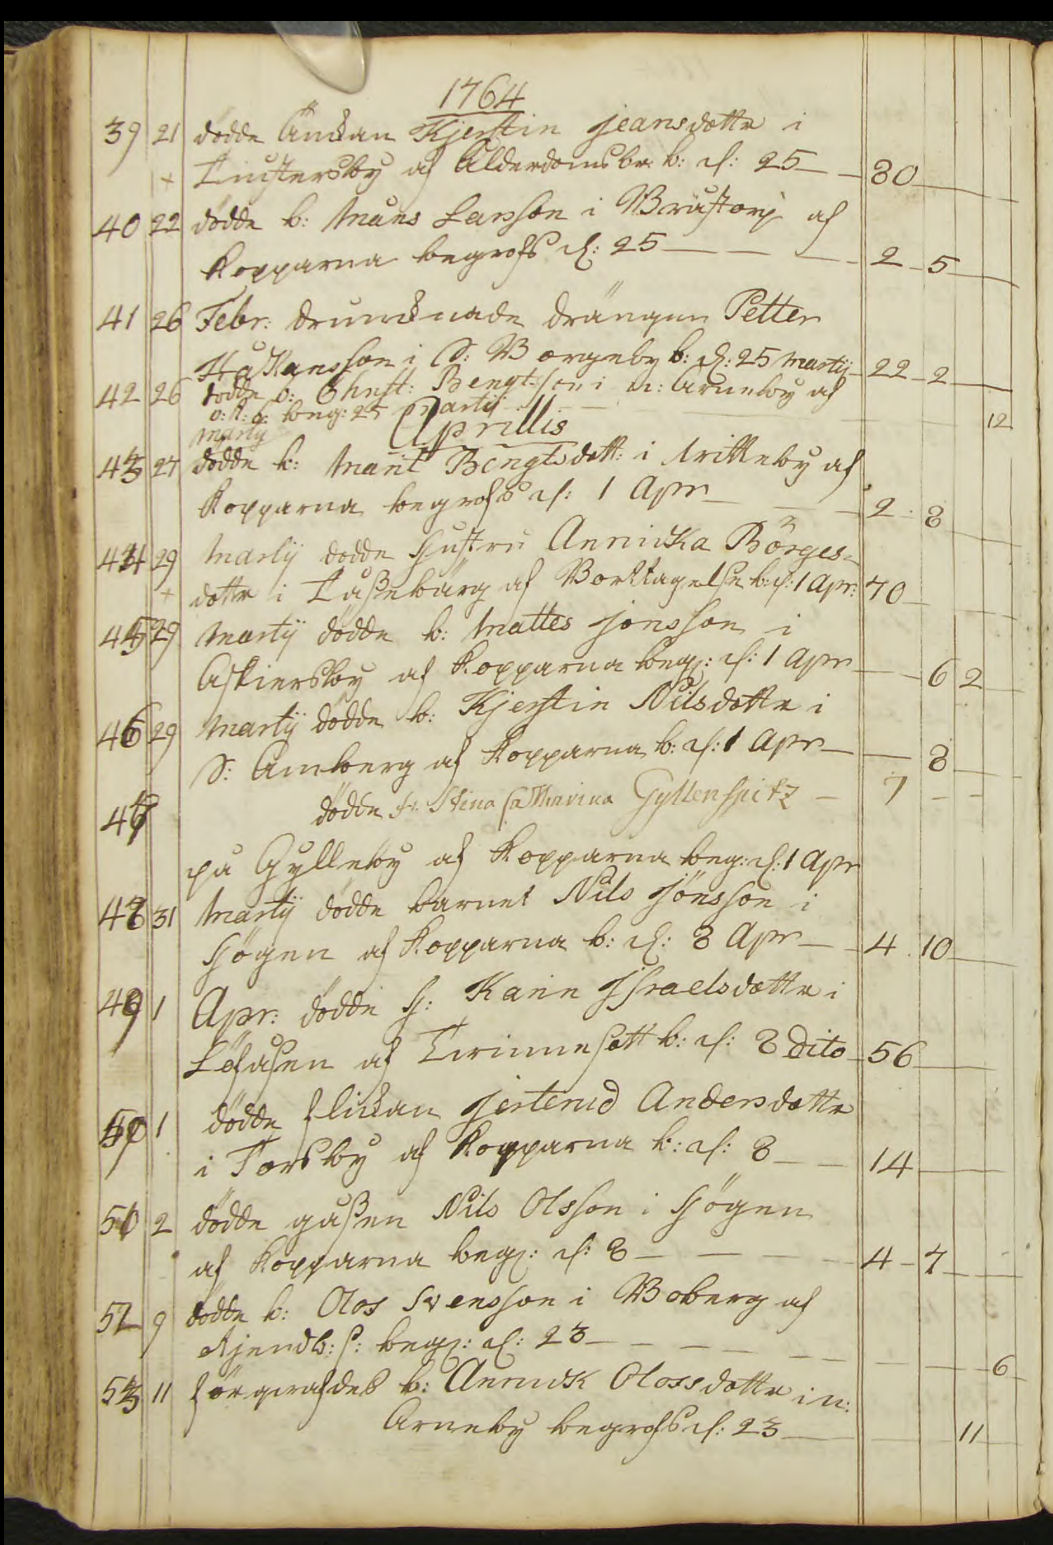 1764
39 21 dödde Änkan Kjerstin Jeansdotter i
+ Lustersby af Ålderdomsbr: b: d: 25 — 80
40 22 dödde b: Måns Larsson i Brustorp af
Kopparna begrofs d: 25 — 2 - 5
41 26 Febr: drunknade drängen Petter
Håkansson i S: Borgeby b: d: 25 Martij 22 - 2
42 26 dödde b: Christ: Bengtsson i n: Arneby af
beg: 25 Martij — 12
Martij Aprillis
43 27 dödde b: Marit Bengtsdott: i Kritteby af
Kopparna begrofs d: 1 Apr — 2 - 8
44 29 Martij dödde Hustru Annicka Börges-
+ dotter i Låssebärg af Borttagelse b: d: 1 Apr: 70
45 29 Martij dödde b: Mattes Jonsson i
Askiersby af Kopparna begr: d: 1 Apr — 6 2
46 29 Martij dödde b: Kjerstin Nilsdotter i
S: Amberg af Kopparna b: d: 1 Apr — 8
47 dödde fr: Stina Catharina Gyllenspitz — 7
på Gylleby af Kopparna beg: d: 1 Apr
48 31 Martij dödde barnet Nils Jönsson i
Högen af Kopparna b: d: 8 Apr — 4 . 10
49 1 Apr: dödde H: Karin Israelsdotter i
Löfåsen af Trinnesott b: d: 8 dito 56
50 1 dödde flickan Jerterud Andersdotter
i Torsby af Kopparna b: d: 8 — 14
51 2 dödde gåssen Nils Olsson i Högen
af Kopparna begr: d: 8 — 4 - 7
52 9 dödde b: Olos Svensson i Boberg af
begr: d: 23 — 6
53 11 förgrafdes b: Annick Olossdotter i n:
Arneby begrofs d: 23 — 11